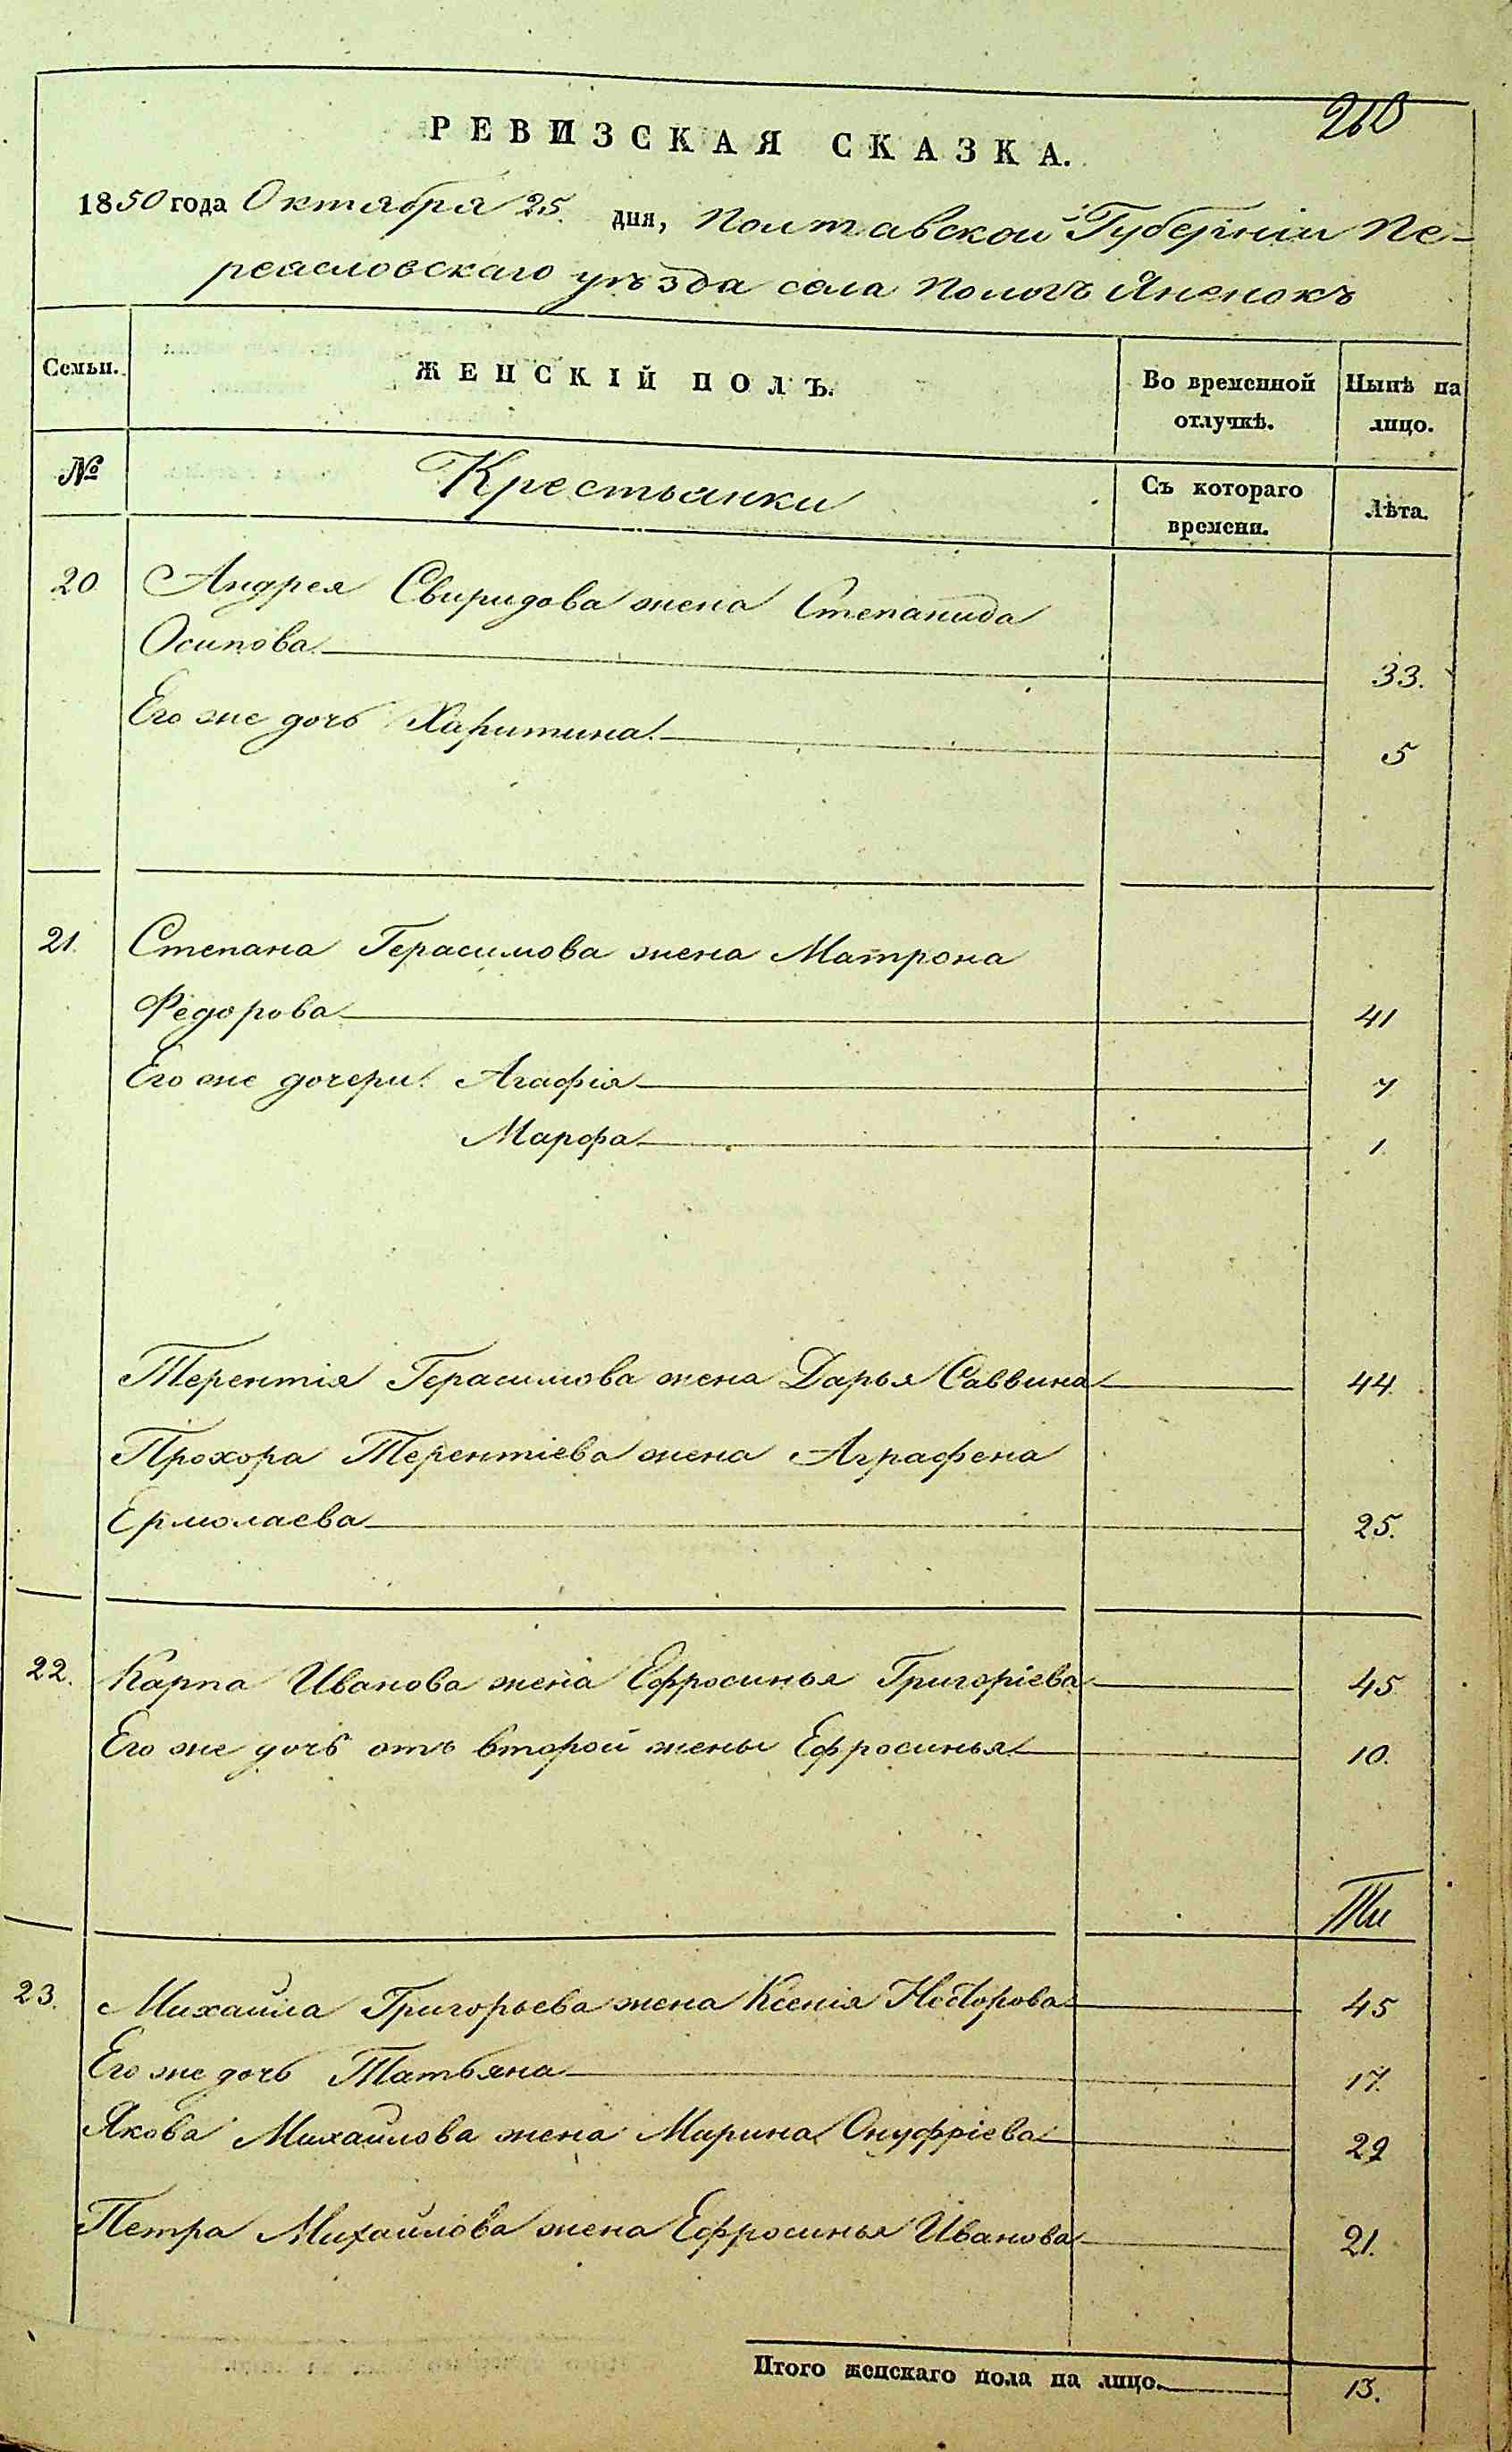 260
РЕВИЗСКАЯ СКАЗКА.
1850 года Октября 25. дня, Полтавской Губерніи Пе-
реясловскаго уѣзда села Пологъ Яненокъ
Семьи. ЖЕНСКІЙ ПОЛЪ. Во временной отлучкѣ. Нынѣ на лицо.
№ Крестьянки Съ котораго времени. Лѣта.
20 Андрея Свиридова жена Степанида
Осипова 33.
Его же дочь Харитина 5
21. Степана Герасимова жена Матрона
Федорова 41
Его же дочери: Агафія 7
Марфа 1.
Терентія Герасимова жена Дарья Саввина 44.
Прохора Терентіева жена Аграфена
Ермолаева 25.
22. Карпа Иванова жена Ефросинья Григоріева 45
Его же дочь отъ второй жены Ефросинья 10.
23. Михайла Григорьева жена Ксенія Несторова 45
Его же дочь Татьяна 17.
Якова Михайлова жена Марина Онуфріева 22
Петра Михайлова жена Ефросинья Иванова 21.
Итого женскаго пола на лицо. 13.